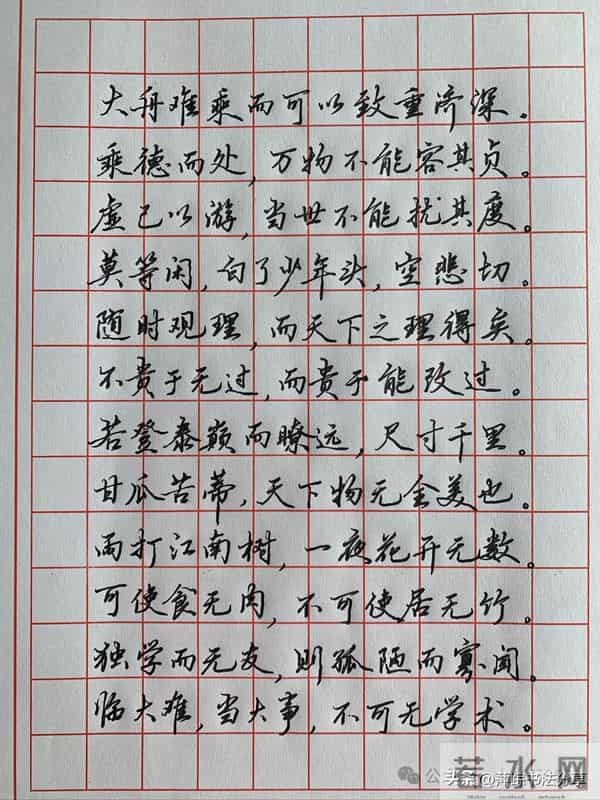 大舟难乘而可以致重济深。
乘德而处，万物不能容其贞。
虚己以游，当世不能扰其度。
莫等闲，白了少年头，空悲切。
随时观理，而天下之理得矣。
不贵于无过，而贵于能改过。
若登泰巅而瞭远，尺寸千里。
甘瓜苦蒂，天下物无全美也。
雨打江南树，一夜花开无数。
可使食无肉，不可使居无竹。
独学而无友，则孤陋而寡闻。
临大难，当大事，不可无学术。
若水网
头条
书法分享